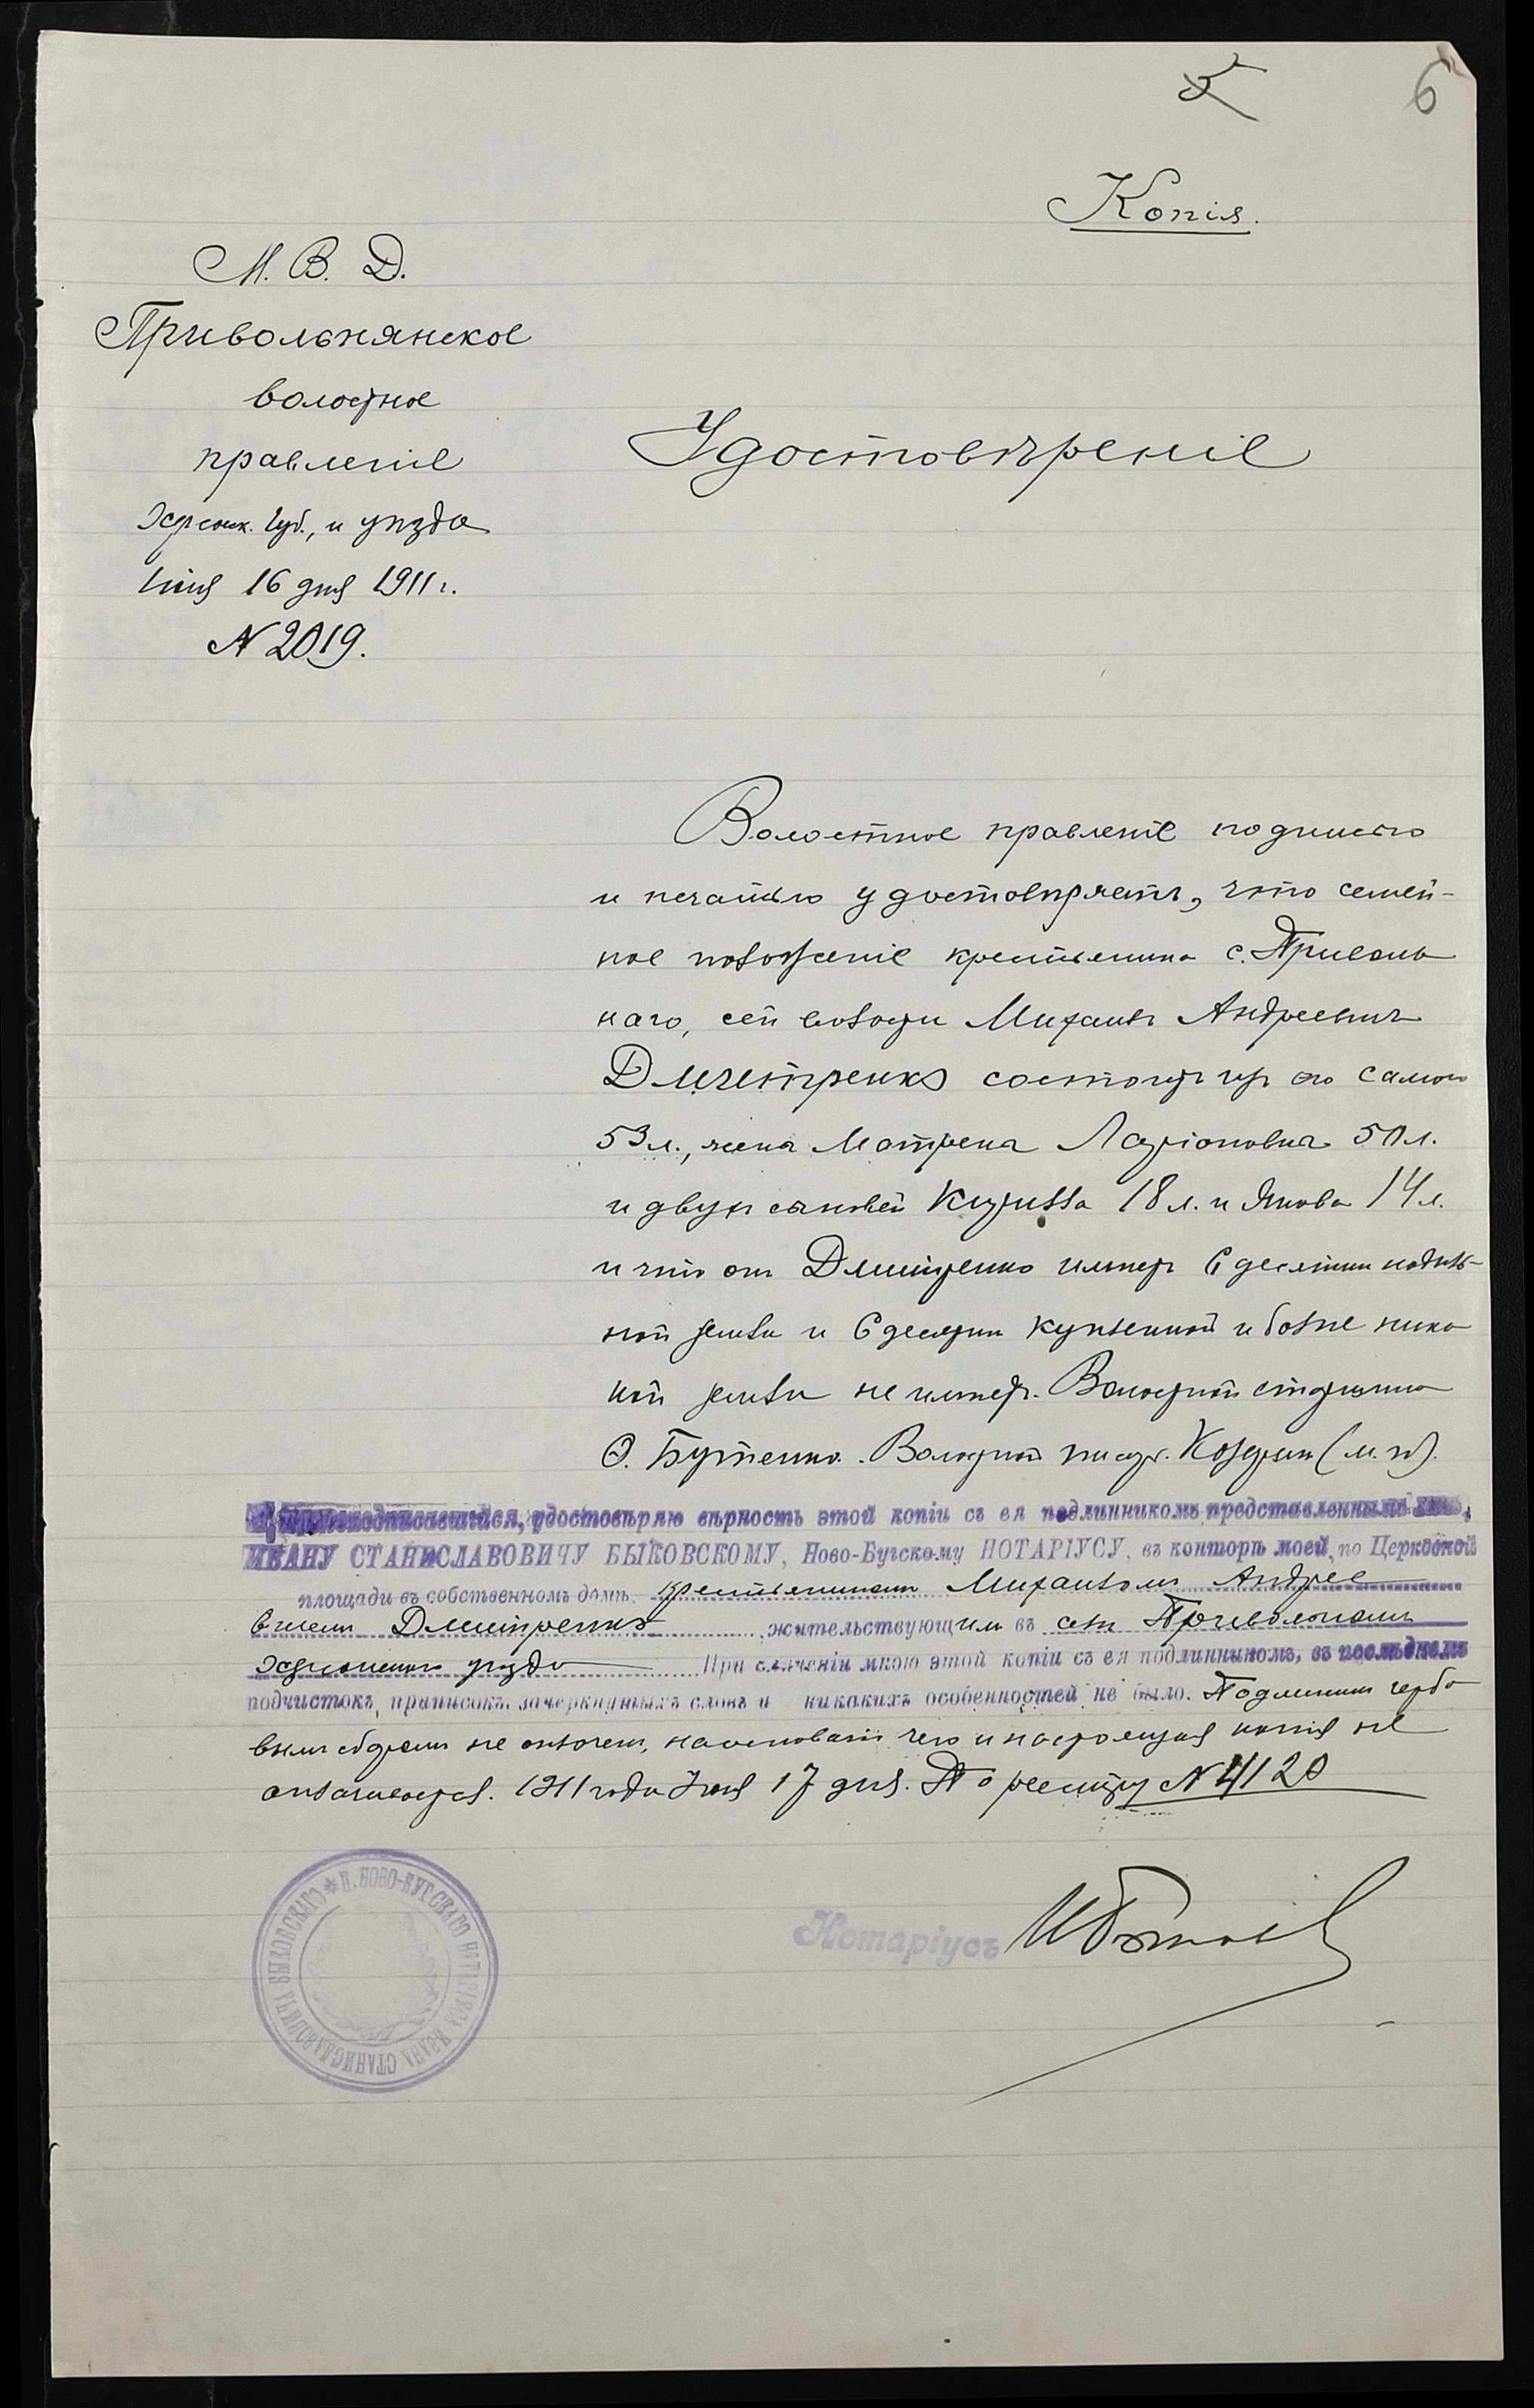 5
6
Копія.
М. В. Д.
Привольнянское
волостное
правленіе
Херсонк. губ., и уѣзда
Іюня 16 дня 1911 г.
N 2019.
Удостовѣреніе
Волостное правленіе подписью
и печатью удостовѣряетъ, что семей-
ное положеніе крестьянина с. Приволь
наго, сей волости Михаилъ Андреевичъ
Дмитренко состоитъ изъ его самого
53 л., жена Матрена Ларіоновна 50 л.
и двухъ сыновей Кирилла 18 л. и Якова 14 л.
и что онъ Дмитренко имѣетъ 6 десятин надѣль-
ной земли и 6 десятин купленной и болѣе ника
кой земли не имѣетъ. Волостной старшина
Ѳ. Бутенко. Волостной писарь (м. п).
Я, нижеподписавшійся, удостовѣряю вѣрность этой копіи съ ея подлинникомъ представленнымъ мнѣ,
ИВАНУ СТАНИСЛАВОВИЧУ БЫКОВСКОМУ, Ново-Бугскому НОТАРІУСУ, въ конторѣ моей, по Церковной
площади въ собственномъ домѣ крестьянином Михаилом Андрее
вичем Дмитренко жительствующим въ селѣ Привольном
Херсонскаго уѣзда При сличеніи мною этой копіи съ ея подлинникомъ, въ послѣднемъ
подчистокъ, приписокъ, зачеркнутыхъ словъ и никакихъ особенностей не было. Подлинник гербо
вым сбором не оплочен, на основаніи чего и настоящая копія не
оплачивается. 1911 года Іюня 17 дня. По реестру N 4120
Н. НОВО-БУГСКАГО НОТАРІУСА ИВАНА СТАНИСЛАВОВИЧА БЫКОВСКАГО
Нотаріусъ